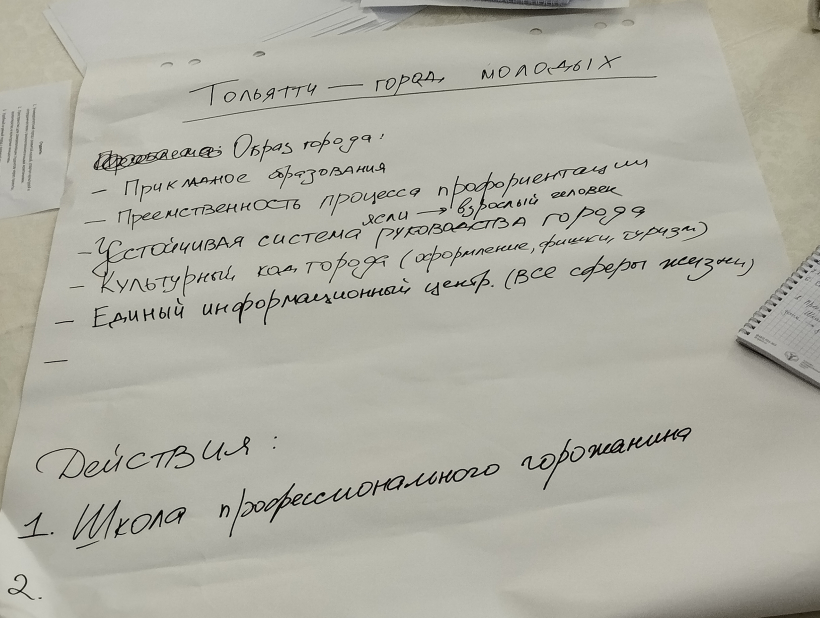 Тольятти — город молодых
Образ города:
— Прикладное образования
— Преемственность процесса профориентации
ясли → взрослый человек
— Устойчивая система руководства города
— Культурный код города (оформление, фишки, туризм)
— Единый информационный центр. (все сферы жизни)
—
Действия:
1. Школа профессионального горожанина
2.